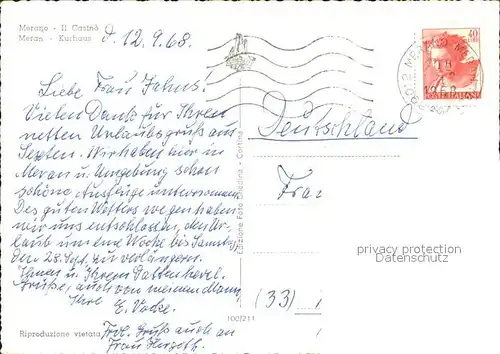 Merano - Il Casinò
Meran - Kurhaus
d. 12.9.68.
Liebe Frau Jahns!
Vielen Dank für Ihren
netten Urlaubsgruß aus
Sexten. Wir haben hier in
Meran u. Umgebung schon
schöne Ausflüge unternommen.
Des guten Wetters wegen haben
wir uns entschlossen, den Ur-
laub um eine Woche bis Samstag
den 28. Sept. zu verlängern.
Ihnen u. Ihrem Gatten herzl.
Grüße, auch von meinem Mann,
Ihre E.
Frdl. Gruß auch an
Frau
Riproduzione vietata
100/211
Edizione Foto Ghedina - Cortina
40
Deutschland
Frau
(33)
privacy protection
Datenschutz